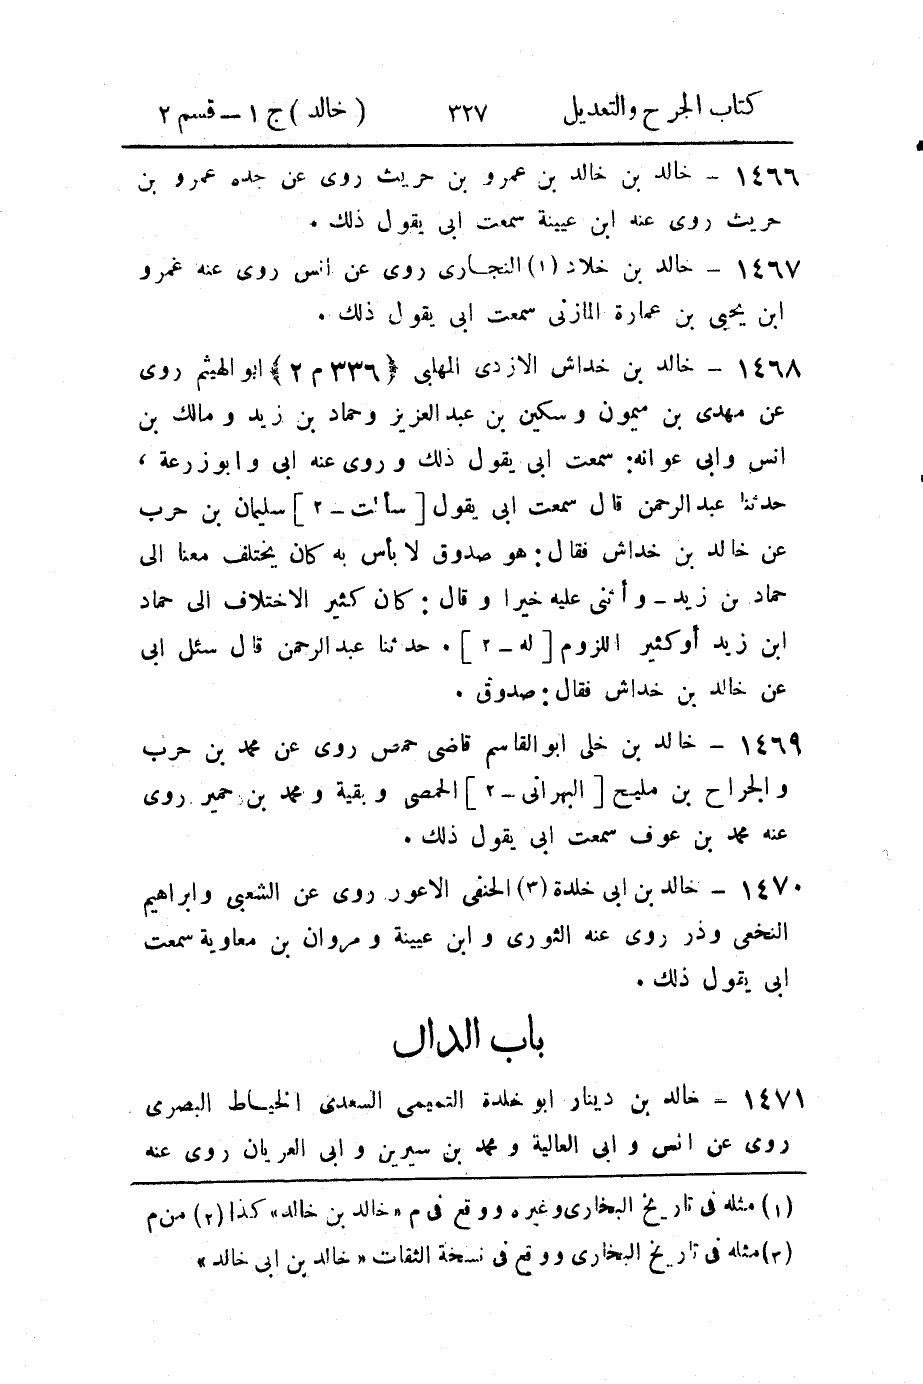 كتاب الجرح والتعديل ٣٢٧ (خالد) ج ١ – قسم ٢
١٤٦٦ – خالد بن خالد بن عمرو بن حريث روى عن جده عمرو بن
حريث روى عنه ابن عيينة سمعت ابى يقول ذلك .
١٤٦٧ – خالد بن خلاد (١) النجارى روى عن انس روى عنه عمرو
ابن يحيى بن عمارة المازنى سمعت ابى يقول ذلك .
١٤٦٨ – خالد بن خداش الازدى المهلبى ﴿٣٣٦ م ٢﴾ ابو الهيثم روى
عن مهدى بن ميمون و سكين بن عبد العزيز وحماد بن زيد و مالك بن
انس وابى عوانه: سمعت ابى يقول ذلك و روى عنه ابى و ابو زرعة ،
حدثنا عبد الرحمن قال سمعت ابى يقول [ سألت – ٢ ] سليمان بن حرب
عن خالد بن خداش فقال: هو صدوق لا بأس به كان يختلف معنا الى
حماد بن زيد – و أثنى عليه خيرا و قال : كان كثير الاختلاف الى حماد
ابن زيد أو كثير اللزوم [ له – ٢ ] . حدثنا عبد الرحمن قال سئل ابى
عن خالد بن خداش فقال: صدوق .
١٤٦٩ – خالد بن خلى ابو القاسم قاضى حمص روى عن محمد بن حرب
و الجراح بن مليح [ البهرانى – ٢ ] الحمصى و بقية و محمد بن حمير روى
عنه محمد بن عوف سمعت ابى يقول ذلك .
١٤٧٠ – خالد بن ابى خلدة (٣) الحنفى الاعور روى عن الشعبى و ابراهيم
النخعى وذر روى عنه الثورى و ابن عيينة و مروان بن معاوية سمعت
ابى يقول ذلك .
باب الدال
١٤٧١ – خالد بن دينار ابو خلدة التميمى السعدى الخياط البصرى
روى عن انس و ابى العالية و محمد بن سيرين و ابى العريان روى عنه
(١) مثله فى تاريخ البخارى وغيره ووقع فى م «خالد بن خالد» كذا (٢) من م
(٣) مثله فى تاريخ البخارى ووقع فى نسخة الثقات « خالد بن ابى خالد »